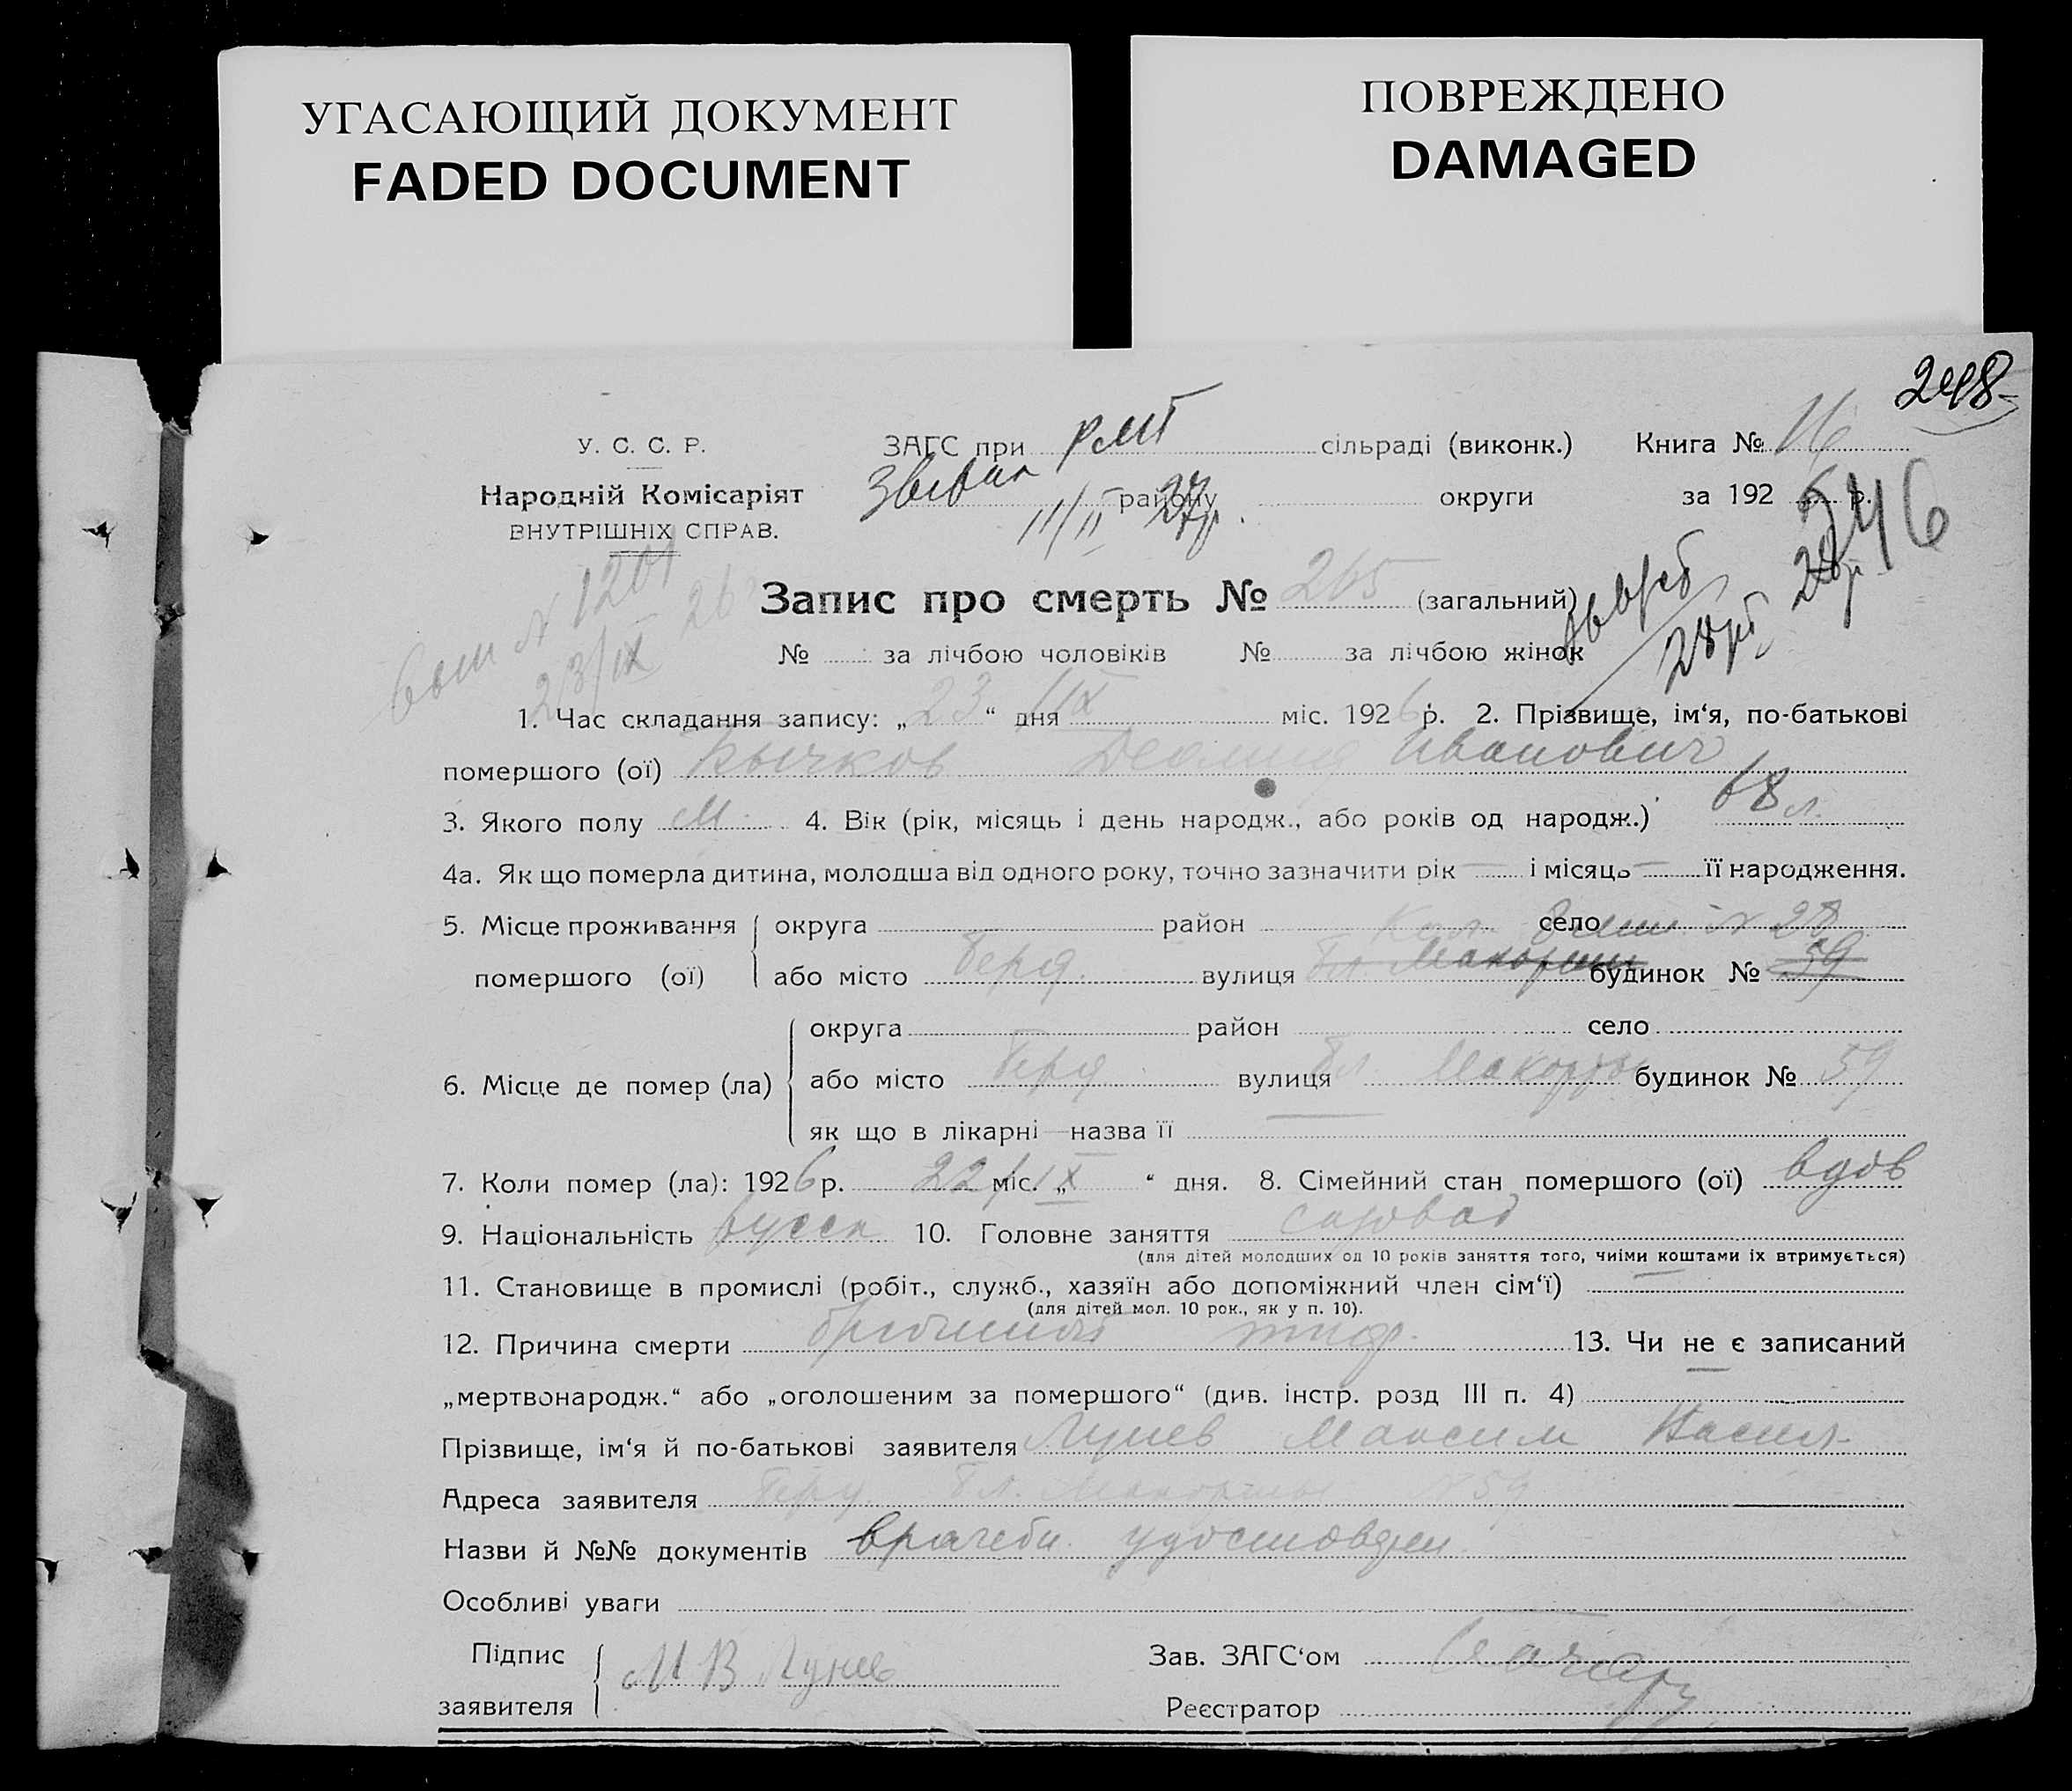 УГАСАЮЩИЙ ДОКУМЕНТ
FADED DOCUMENT
ПОВРЕЖДЕНО
DAMAGED
248
У. С. С. Р.
Народній Комісаріят
ВНУТРІШНІХ СПРАВ.
ЗАГС при сільраді (виконк.) Книга № 16
району округи за 192 р.
11/II 27р.
246
Запис про смерть № 265 (загальний)
№ за лічбою чоловіків № за лічбою жінок
№ 1201
23/IX 26
1. Час складання запису: „23“ дня IX міс. 1926 р. 2. Прізвище, ім‘я, по-батькові
помершого (ої) Бычков Иванович
3. Якого полу м. 4. Вік (рік, місяць і день народж., або років од народж.) 68 л.
4а. Як що померла дитина, молодша від одного року, точно зазначити рік — і місяць — її народження.
5. Місце проживання округа район село № 28
помершого (ої) або місто Берд. вулиця будинок № 59
округа район село
6. Місце де помер (ла) або місто Берд вулиця будинок № 59
як що в лікарні—назва її
7. Коли помер (ла): 1926 р. 22/IX міс. „ “ дня. 8. Сімейний стан помершого (ої) вдов
9. Національність русск 10. Головне заняття
(для дітей молодших од 10 років заняття того, чиїми коштами їх втримується)
11. Становище в промислі (робіт., служб., хазяїн або допоміжний член сім‘ї) —
(для дітей мол. 10 рок., як у п. 10).
12. Причина смерти брюшной тиф. 13. Чи не є записаний
„мертвонародж.“ або „оголошеним за помершого“ (див. інстр. розд III п. 4)
Прізвище, ім‘я й по-батькові заявителя Лунев Максим Васил.
Адреса заявителя Берд. № 59
Назви й №№ документів врачебн. удостовер
Особливі уваги
Підпис
заявителя М В Лунев
Зав. ЗАГС‘ом
Реєстратор